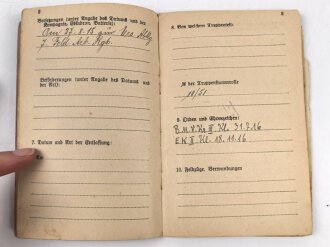 8
Versetzungen (unter Angabe des Datums und der
Kompagnie, Eskadron, Batterie):
Am 27. 8. 15 zum Ers. Abtlg
7. Feld Art. Rgt.
Beförderungen (unter Angabe des Datums und
der Art):
7. Datum und Art der Entlassung:
9
8. Bei welchem Truppenteil:
№ der Truppenstammrolle
18/51
9. Orden und Ehrenzeichen:
B.M.V.Kr III. Kl. 31.7.16
EK II. Kl. 18.11.16
10. Feldzüge. Verwundungen